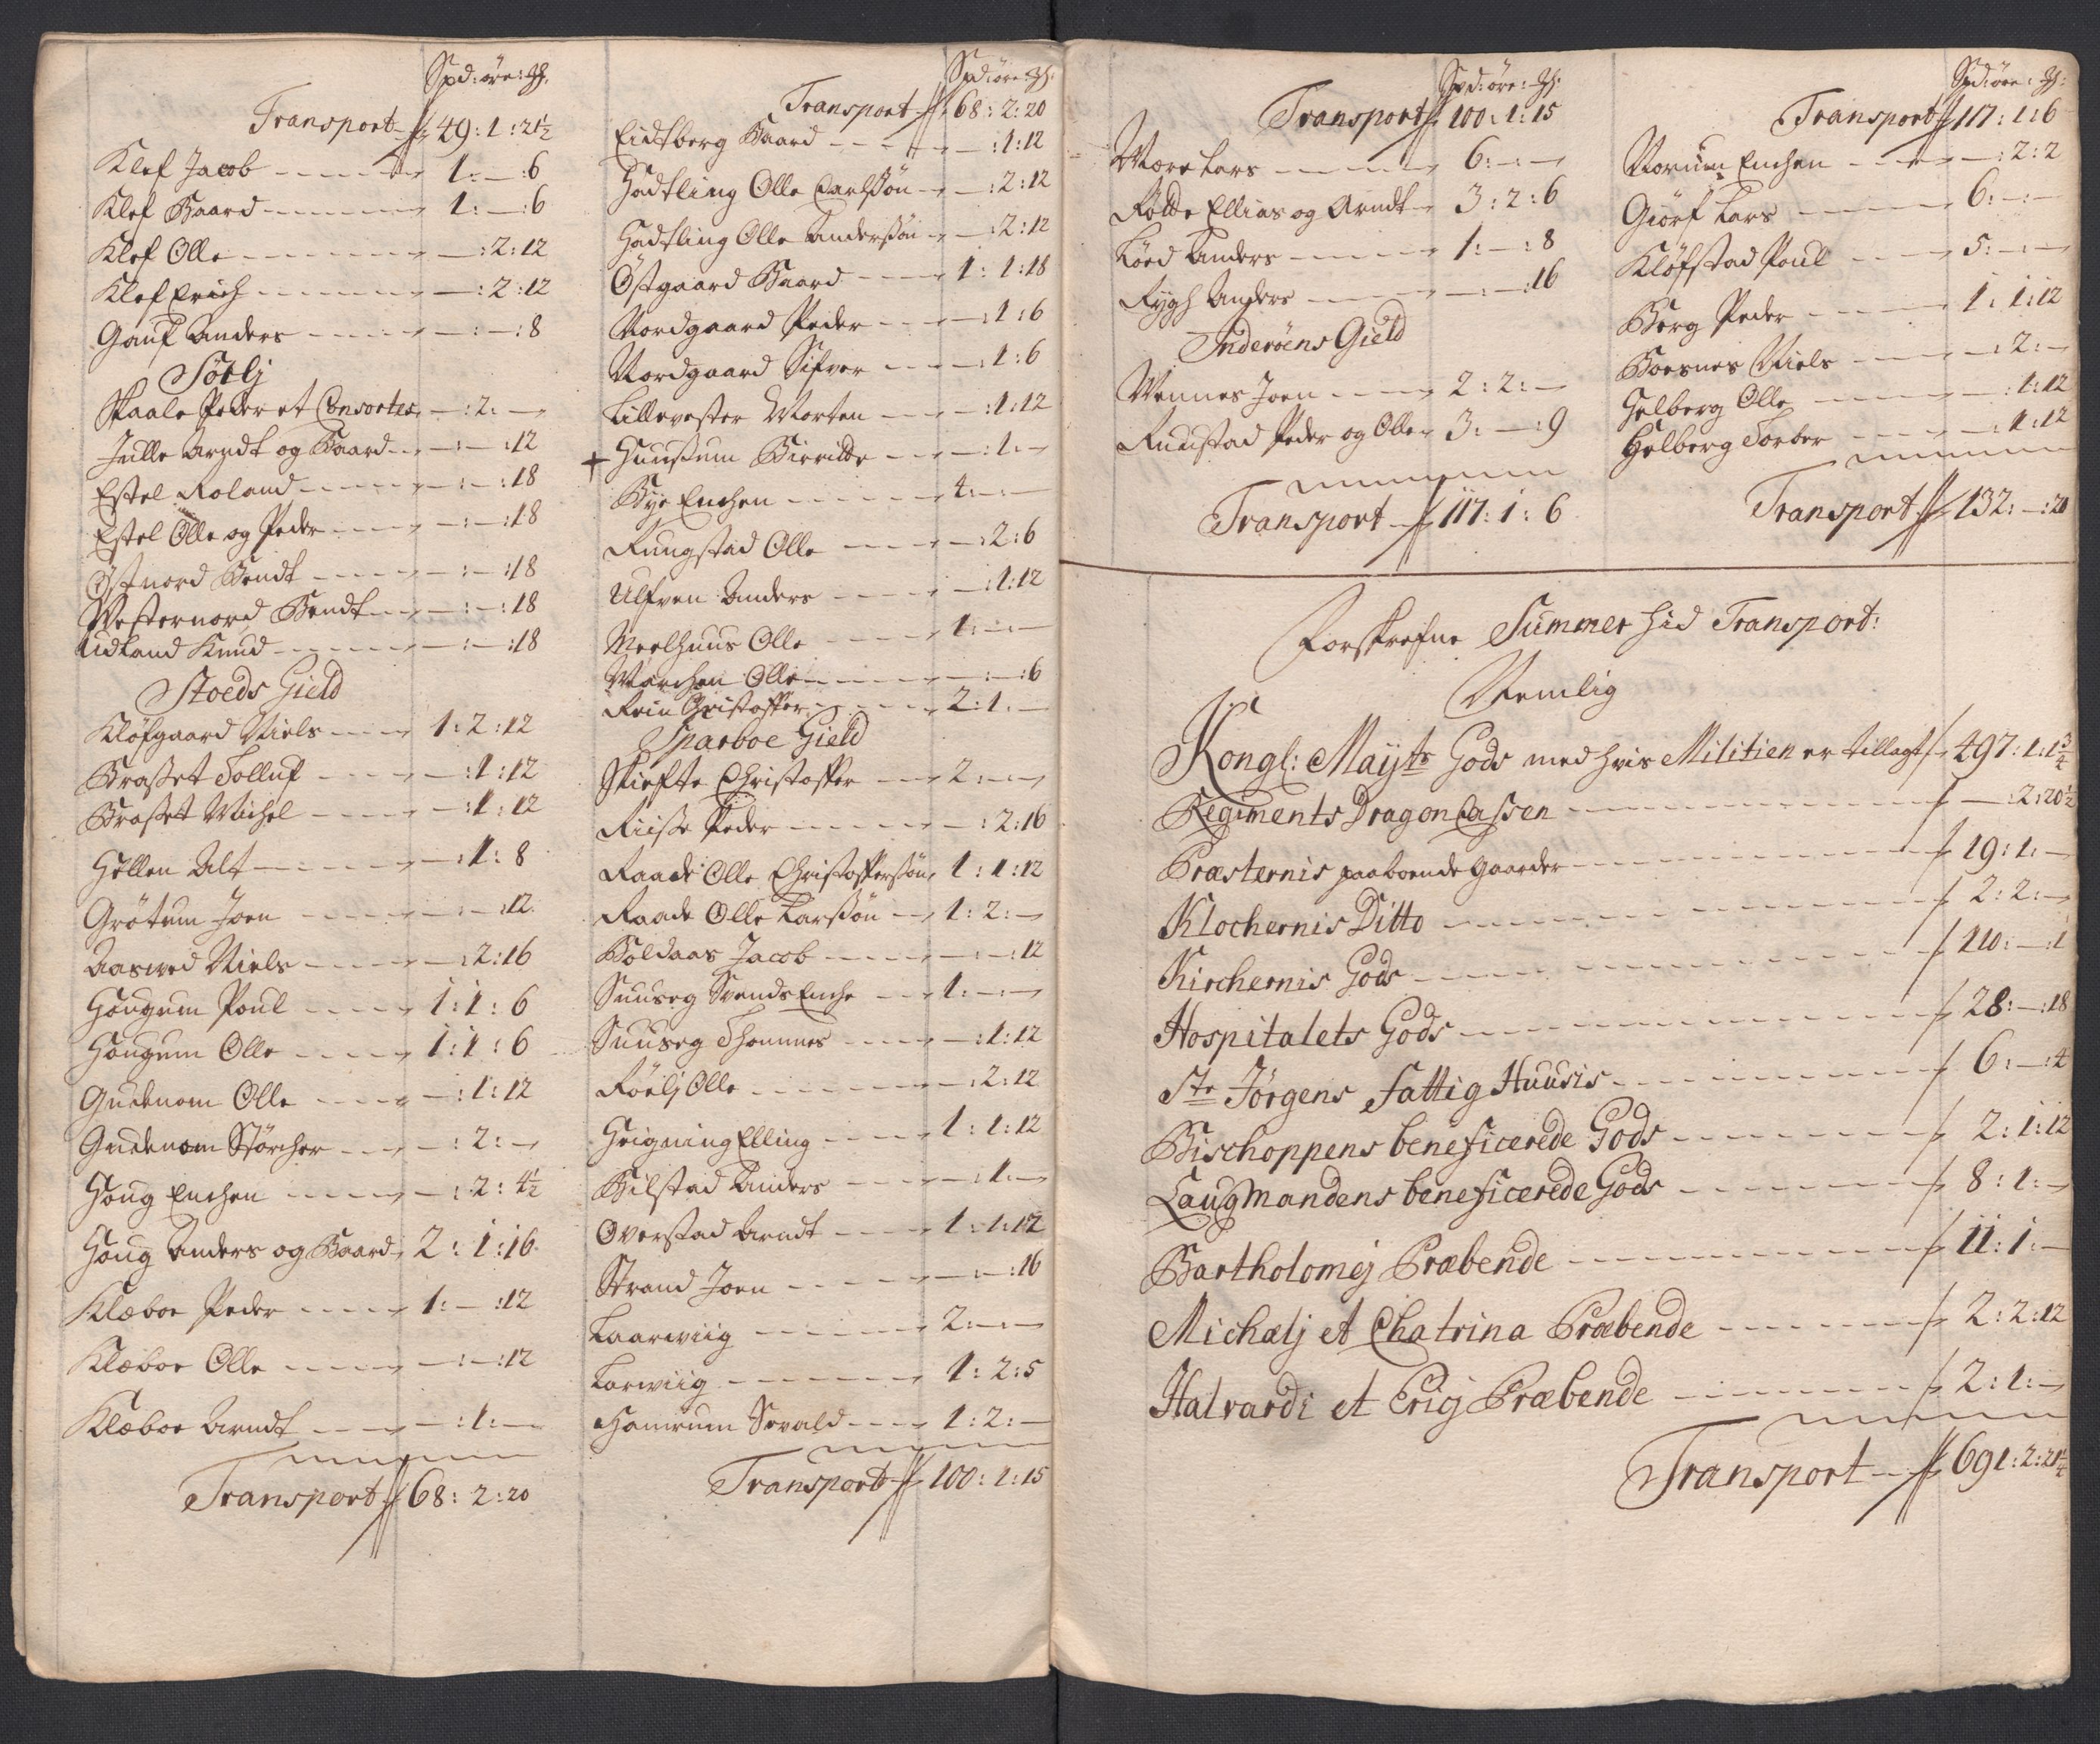 Spd: øre: ℔:
Transport 49:1:21½
Klef Jacob 1:—:6
Klef Baard 1:—:6
Klef Olle —:2:12
Klef Erich —:2:12
Gauf Anders —:—:8
Sørlj
Skaale Peder et Consortes —:2:—
Julle Arndt og Baard —:—:12
Estel Roland —:—:18
Estel Olle og Peder —:—:18
Østnord Bendt —:—:18
Westernord Bendt —:—:18
Lidland Knud —:—:18
Stoeds Gield
Kløfgaard Niels 1:2:12
Brasset Tolluf —:1:12
Brasset Michel —:1:12
Hellen Alf —:1:8
Grøtum Joen —:—:12
Aasved Niels —:2:16
Hougum Poul 1:1:6
Hougum Olle 1:1:6
Gudenom Olle —:1:12
Gudenom Størcher —:2:—
Houg Enchen —:2:4½
Houg Anders og Baard 2:1:16
Klæboe Peder 1:—:12
Klæboe Olle —:—:12
Klæboe Arndt —:1:—
Transport 68:2:20
Spd: øre: ℔:
Transport 68:2:20
Eidtberg Baard —:1:12
Hadtling Olle Carlssøn —:2:12
Hadtling Olle Anderssøn —:2:12
Østgaard Baard 1:1:18
Nordgaard Peder —:1:6
Nordgaard Sifver —:1:6
Lillevester Morten —:1:12
+ Huussum Birritte —:1:—
Bye Enchen 4:—:—
Rungstad Olle —:2:6
Ulfven Anders —:1:12
Meelhuus Olle 1:—:—
Marchen Olle —:—:6
Rein Christopher 2:1:—
Sparboe Gield
Skiefte Christopher 2:—:—
Riisse Peder —:2:16
Raade Olle Christopherssøn 1:1:12
Raade Olle Larssøn 1:2:—
Boldaas Jacob —:—:12
Suuseg Svends Enche 1:—:—
Suuseg Thommes —:1:12
Røelj Olle —:2:12
Heigning Elling 1:1:12
Bilstad Anders —:1:—
Overstad Arndt 1:1:12
Strand Joen —:—:16
Laarwiig 2:—:—
Larwiig 1:2:5
Hamrum Sevald 1:2:—
Transport 100:1:15
Spd: øre: ℔:
Transport 100:1:15
Mære Lars 6:—:—
Rølde Ellias og Arndt 3:2:6
Løed Anders 1:—:8
Rygh Anders —:—:16
Inderøens Gield
Wennes Joen 2:2:—
Ruustad Peder og Olle 3:—:9
Transport 117:1:6
Spd: øre: ℔:
Transport 117:1:6
Norum Enchen —:2:2
Giørf Lars 6:—:—
Kløfstad Poul 5:—:—
Berg Peder 1:1:12
Boesnes Niels —:2:—
Helberg Olle —:1:12
Helberg Torber —:1:12
Transport 132:—:20
Forskrefne Summer hid Transport:
Nemlig
Kongl: Mayts Gods med hvis Militien er tillagt 497:1:1¾
Regiments Dragon Cassen —:2:20½
Præsternis paaboende Gaarder 19:1:—
Klochernis Ditto 2:2:—
Kirchernis Gods 110:—:1
Hospitalets Gods 28:—:18
Ste Jörgens Fattig Huusis 6:—:4
Bischoppens beneficerede Gods 2:1:12
Laugmandens beneficerede Gods 8:1:—
Bartholomej Præbende 11:1:—
Michælj et Chatrina Præbende 2:2:12
Halvardi et Erigj Præbende 2:1:—
Transport 691:2:21¼